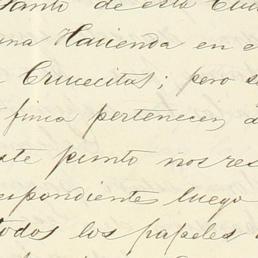 tanto de esta Ciu
una Hacienda en e
Crucecitas; pero s
finca pertenecen a
este punto nos res
spondiente luego
todos los papeles